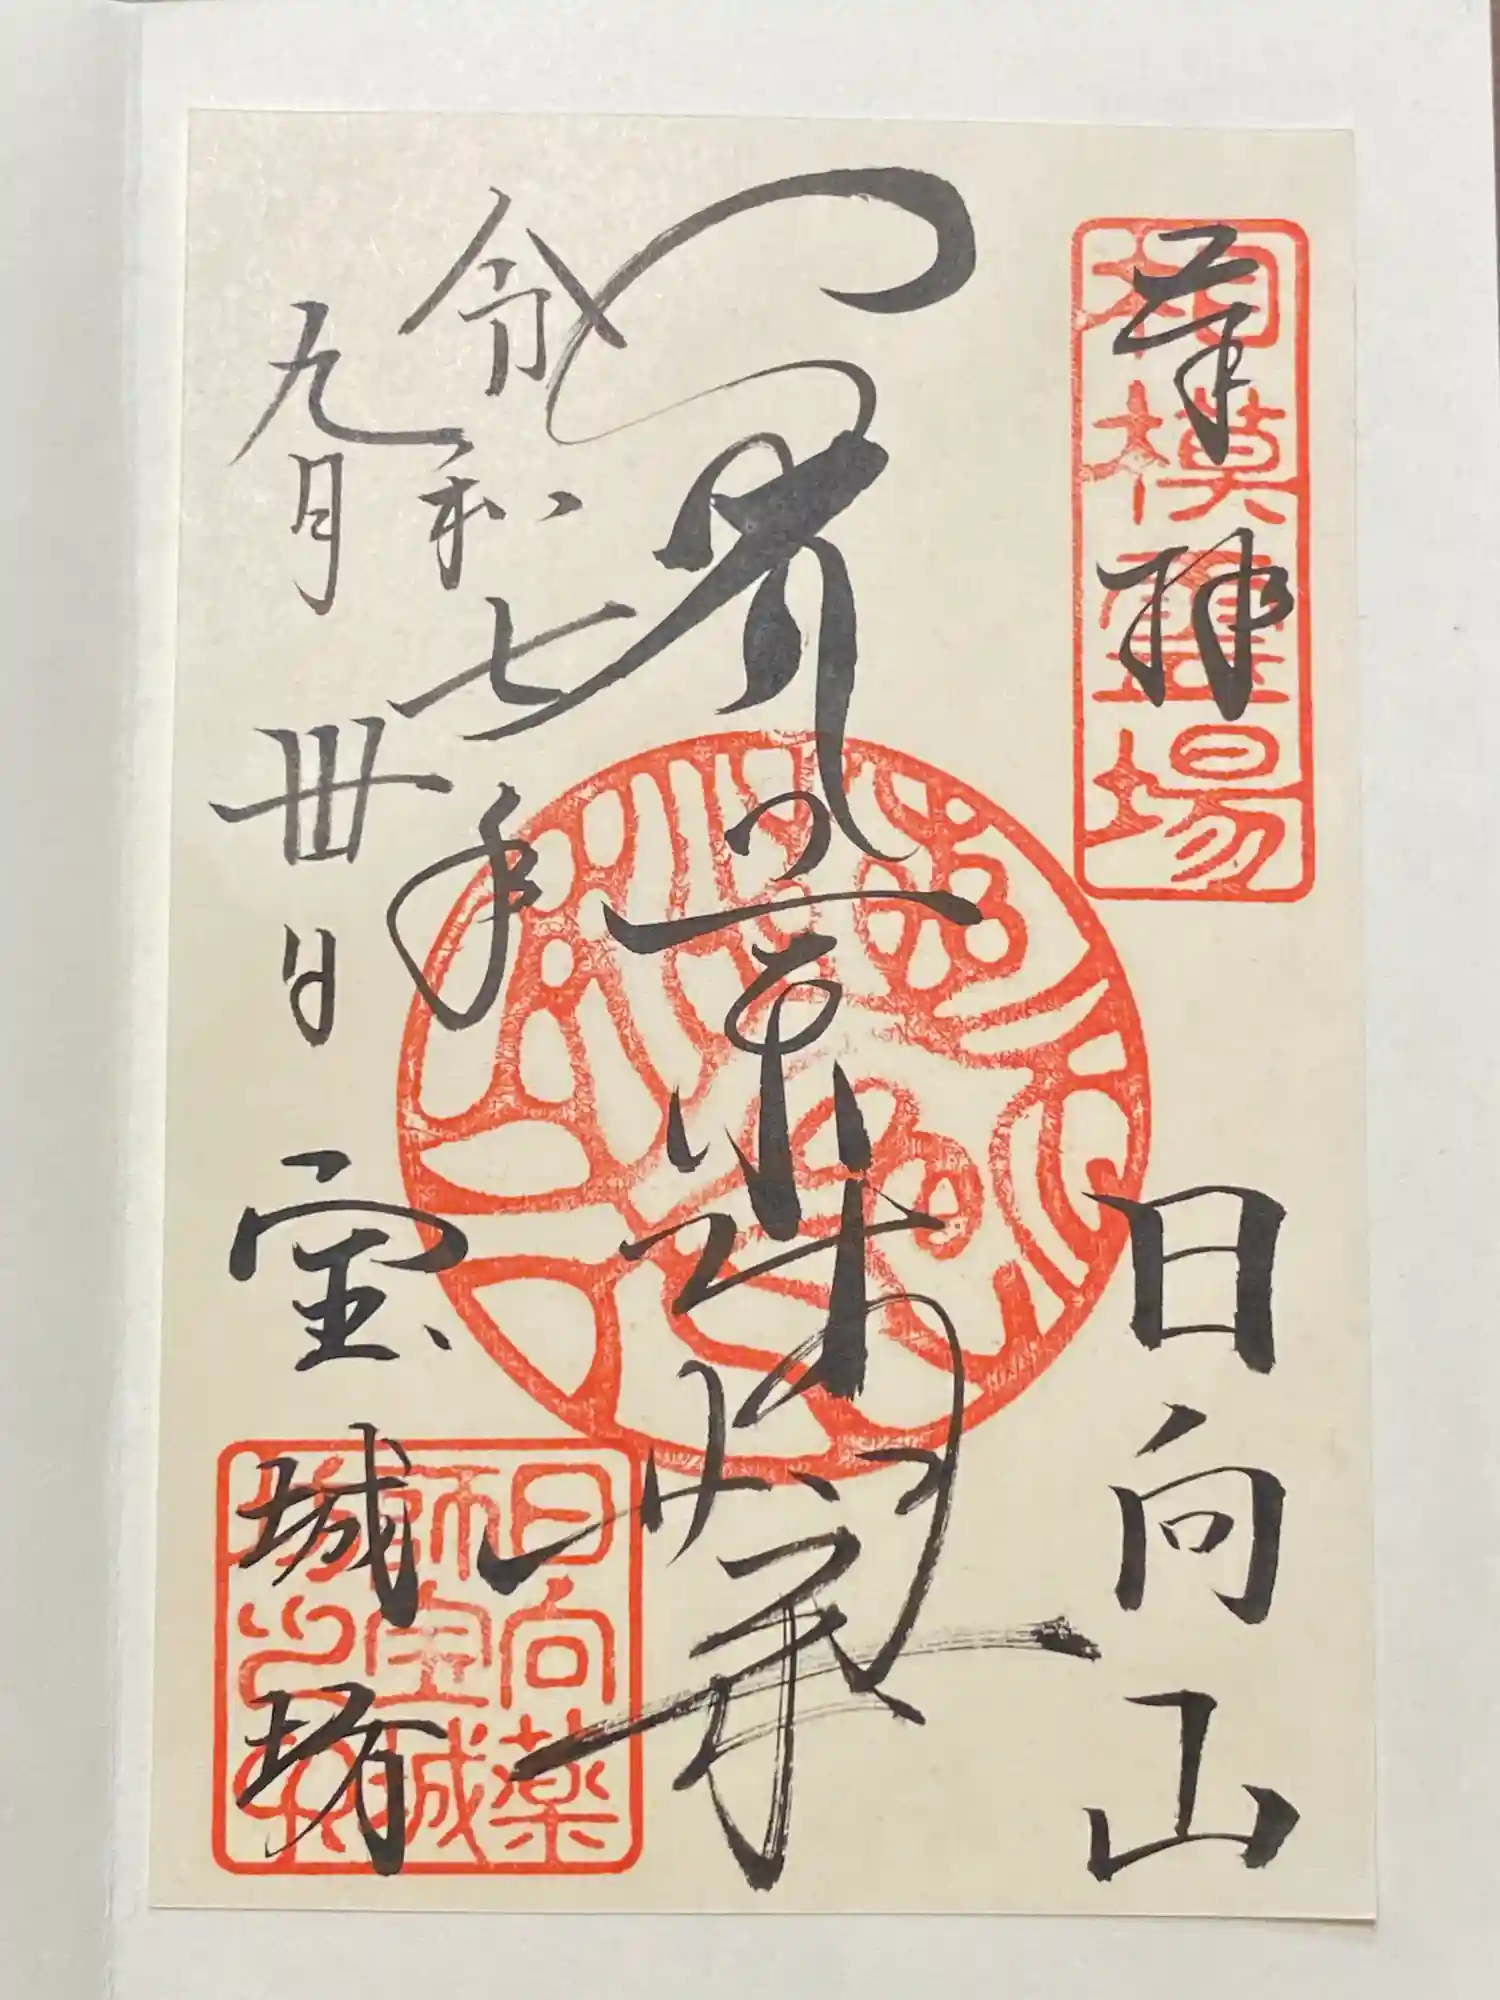 奉拝
日向山
相模靈場
令和七年
九月卅日
宝城坊
日向薬
師宝城
坊之印